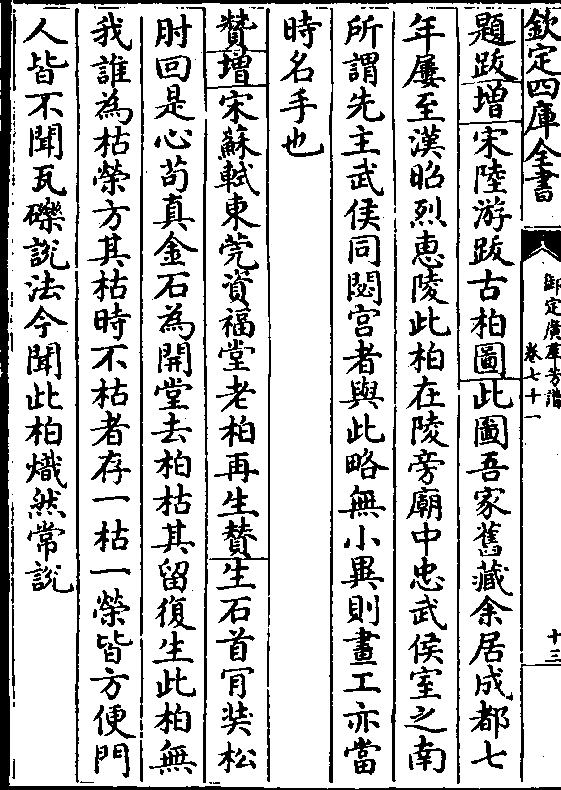 欽定四庫全書
御定廣羣芳譜
卷七十一
十三
題跋增宋陸游跋古柏圖此圖吾家舊藏余居成都七
年屢至漢昭烈惠陵此柏在陵旁廟中忠武侯室之南
所謂先主武侯同閟宫者與此略無小異則畫工亦當
時名手也
贊增宋蘇軾東莞資福堂老柏再生贊生石首肎奘松
肘回是心苟真金石為開堂去柏枯其留復生此柏無
我誰為枯榮方其枯時不枯者存一枯一榮皆方便門
人皆不聞瓦礫說法今聞此柏熾然常說